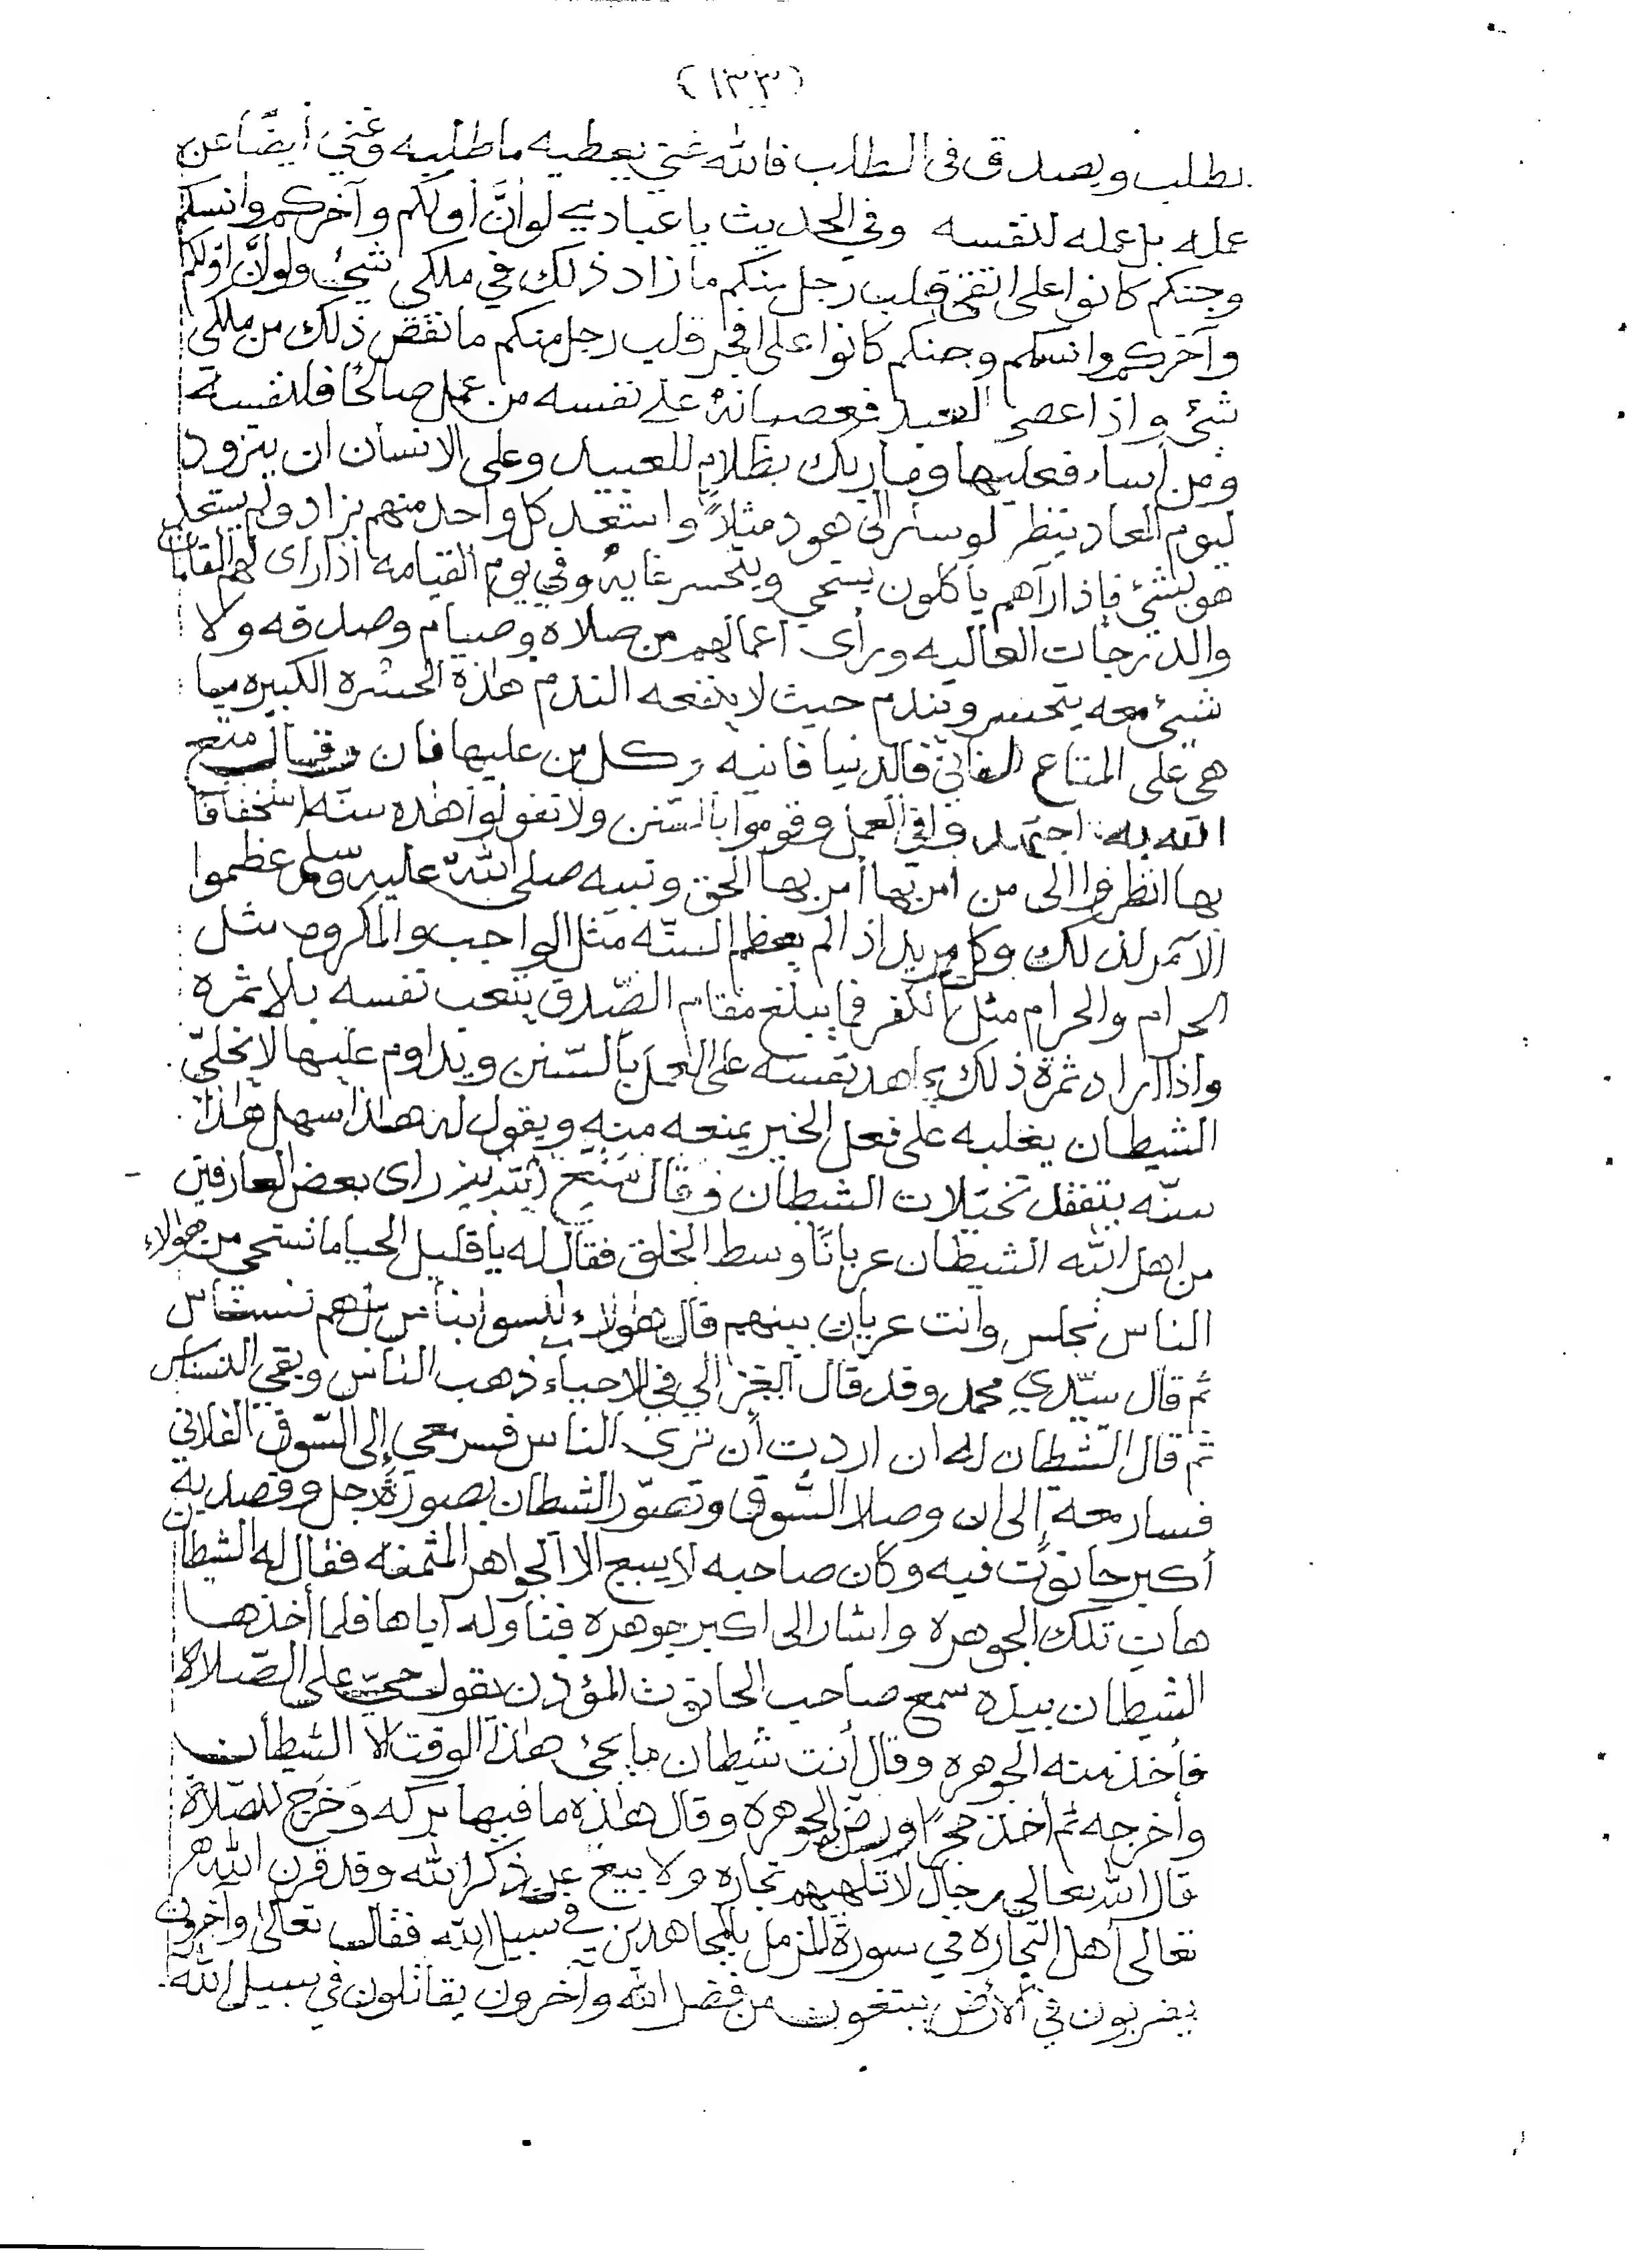 (١٣٣)
يطلب ويصدق في الطلب فالله غني يعطيه ما طلبه وغني أيضًا عن
عمله بل عمله لنفسه وفي الحديث يا عبادي لو أنَّ أولكم وآخركم وانسكم
وجنكم كانوا على اتقى قلب رجل منكم ما زاد ذلك في ملكي شيئ ولو أنَّ اوّلكم
وآخركم وانسكم وجنكم كانوا على افجر قلب رجل منكم ما نقص ذلك من ملكي
شيئ واذا عصى العبد فعصيانهُ على نفسه من عمل صالحًا فلنفسه
ومن أساء فعليها وما ربك بظلامٍ للعبيد وعلى الانسان ان يتزود
ليوم المعاد ينظر لو سار الى هود مثلاً واستعد كل واحد منهم بزاد ولم يستعد
هو بشيئ فإذا رآهم يأكلون يستحي ويتحسر غايهُ وفي يوم القيامه اذا راى لهم المقامات
والدرجات العاليه ورأى اعمالهم من صلاه وصيام وصدقه ولا
شيئ معه يتحسر ويندم حيث لا ينفعه الندم هذه الحسره الكبيره ما
هي على المتاع الفاني فالدنيا فانيه وكل من عليها فان وقال متع
الله به اجتهدوا في العمل وقوموا بالسّنن ولا تقولوا هذه سنّه استخفافًا
بها انظروا الى من امر بها أمر بها الحق ونبيه صلى الله عليه وسلم عظموا
الآمر لذلك وكل مريد اذا لم يعظم السنّه مثل الواجب والمكروه مثل
الحرام والحرام مثل الكفر فما يبلغ مقام الصّدق يتعب نفسه بلا ثمره
واذا اراد ثمرة ذلك يجاهد نفسه على العمل بالسّنن ويداوم عليها لا يخليّ
الشيطان يغلبه على فعل الخير يمنعه منه ويقول له هذا سهل هذا
سنّه تخيلات الشيطان وقال راى بعض العارفين
من اهل الله الشيطان عريانًا وسط الخلق فقال له يا قليل الحيا ما تستحي من هؤلاء
الناس تجلس وانت عريان بينهم قال هؤلاء ليسوا بناس بل هم نسناس
ثم قال سيّدي محمد وقد قال الغزالي في الاحياء ذهب الناس وبقي النسناس
ثم قال الشيطان له ان اردت أن ترى الناس فسر معي إلى السّوق الفلاني
فسار معه إلى ان وصلا السّوق وتصوّر الشيطان بصورة رجل وقصد به
أكبر حانوت فيه وكان صاحبه لا يبيع الا الجواهر المثمنه فقال له الشيطان
هات تلك الجوهره واشار الى اكبر جوهره فناوله اياها فلما أخذها
الشيطان بيده سمع صاحب الحانوت المؤذن يقول حيّ على الصّلاة
فأخذ منه الجوهره وقال أنت شيطان ما يجئ هذا الوقت الا الشيطان
وأخرجه ثم أخذ حجرًا ورضّ الجوهرة وقال هذه ما فيها بركه وخَرج للصّلاة
قال الله تعالى رجال لا تلهيهم تجاره ولا بيع عن ذكر الله وقد قرن الله
تعالى أهل التجاره في سورة المزمل بالمجاهدين في سبيل الله فقال تعالى وآخرون
يضربون في الأرض يبتغون من فضل الله وآخرون يقاتلون في سبيل الله